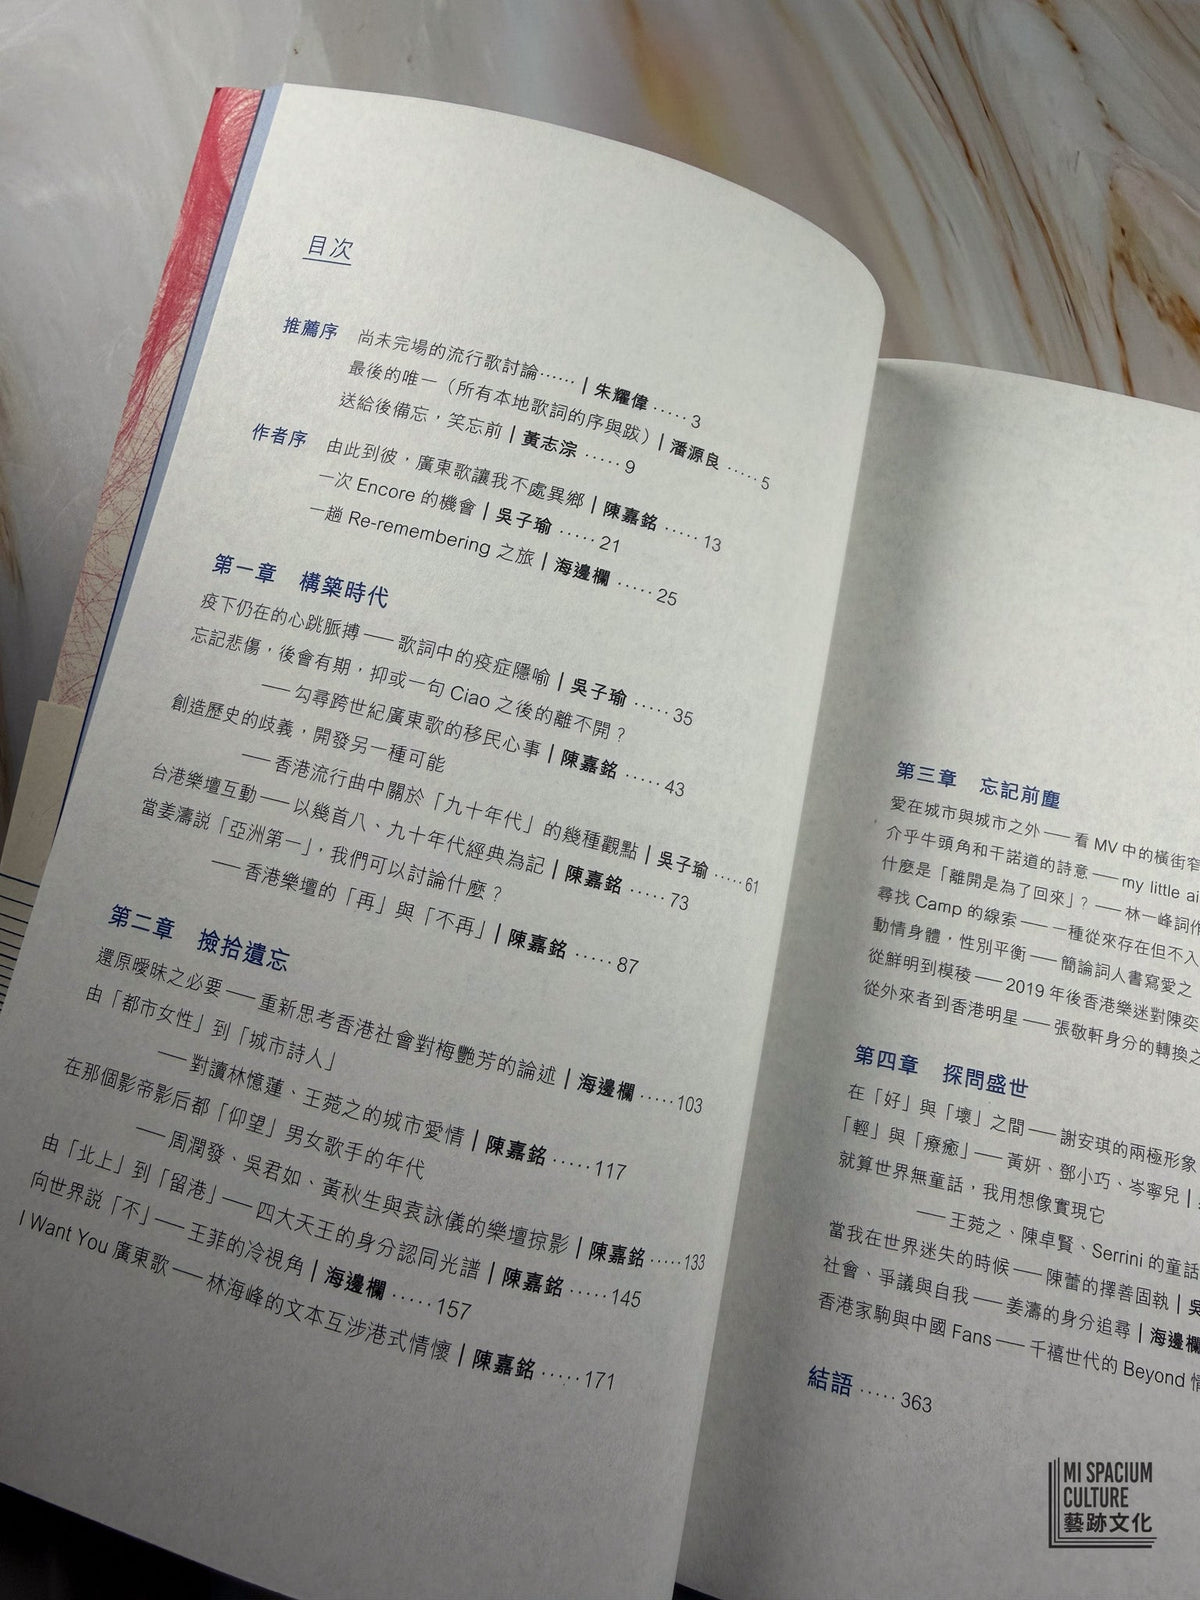 目次
推薦序 尚未完場的流行歌討論⋯⋯｜朱耀偉 ····· 3
最後的唯一（所有本地歌詞的序與跋）｜潘源良 ····· 5
送給後備忘，笑忘前｜黃志淙 ····· 9
作者序 由此到彼，廣東歌讓我不處異鄉｜陳嘉銘 ····· 13
一次 Encore 的機會｜吳子瑜 ····· 21
一趟 Re-remembering 之旅｜海邊欄 ····· 25
第一章 構築時代
疫下仍在的心跳脈搏——歌詞中的疫症隱喻｜吳子瑜 ····· 35
忘記悲傷，後會有期，抑或一句 Ciao 之後的離不開？
——勾尋跨世紀廣東歌的移民心事｜陳嘉銘 ····· 43
創造歷史的歧義，開發另一種可能
——香港流行曲中關於「九十年代」的幾種觀點｜吳子瑜 ····· 61
台港樂壇互動——以幾首八、九十年代經典為記｜陳嘉銘 ····· 73
當姜濤說「亞洲第一」，我們可以討論什麼？
——香港樂壇的「再」與「不再」｜陳嘉銘 ····· 87
第二章 撿拾遺忘
還原曖昧之必要——重新思考香港社會對梅艷芳的論述｜海邊欄 ····· 103
由「都市女性」到「城市詩人」
——對讀林憶蓮、王菀之的城市愛情｜陳嘉銘 ····· 117
在那個影帝影后都「仰望」男女歌手的年代
——周潤發、吳君如、黃秋生與袁詠儀的樂壇掠影｜陳嘉銘 ····· 133
由「北上」到「留港」——四大天王的身分認同光譜｜陳嘉銘 ····· 145
向世界說「不」——王菲的冷視角｜海邊欄 ····· 157
I Want You 廣東歌——林海峰的文本互涉港式情懷｜陳嘉銘 ····· 171
第三章 忘記前塵
愛在城市與城市之外——看 MV 中的橫街窄
介乎牛頭角和干諾道的詩意——my little ai
什麼是「離開是為了回來」？——林一峰詞作
尋找 Camp 的線索——一種從來存在但不入
動情身體，性別平衡——簡論詞人書寫愛之
從鮮明到模稜——2019 年後香港樂迷對陳奕
從外來者到香港明星——張敬軒身分的轉換之
第四章 探問盛世
在「好」與「壞」之間——謝安琪的兩極形象
「輕」與「療癒」——黃妍、鄧小巧、岑寧兒｜
就算世界無童話，我用想像實現它
——王菀之、陳卓賢、Serrini 的童話
當我在世界迷失的時候——陳蕾的擇善固執｜吳
社會、爭議與自我——姜濤的身分追尋｜海邊欄
香港家駒與中國 Fans——千禧世代的 Beyond 情
結語 ····· 363
MI SPACIUM
CULTURE
藝跡文化